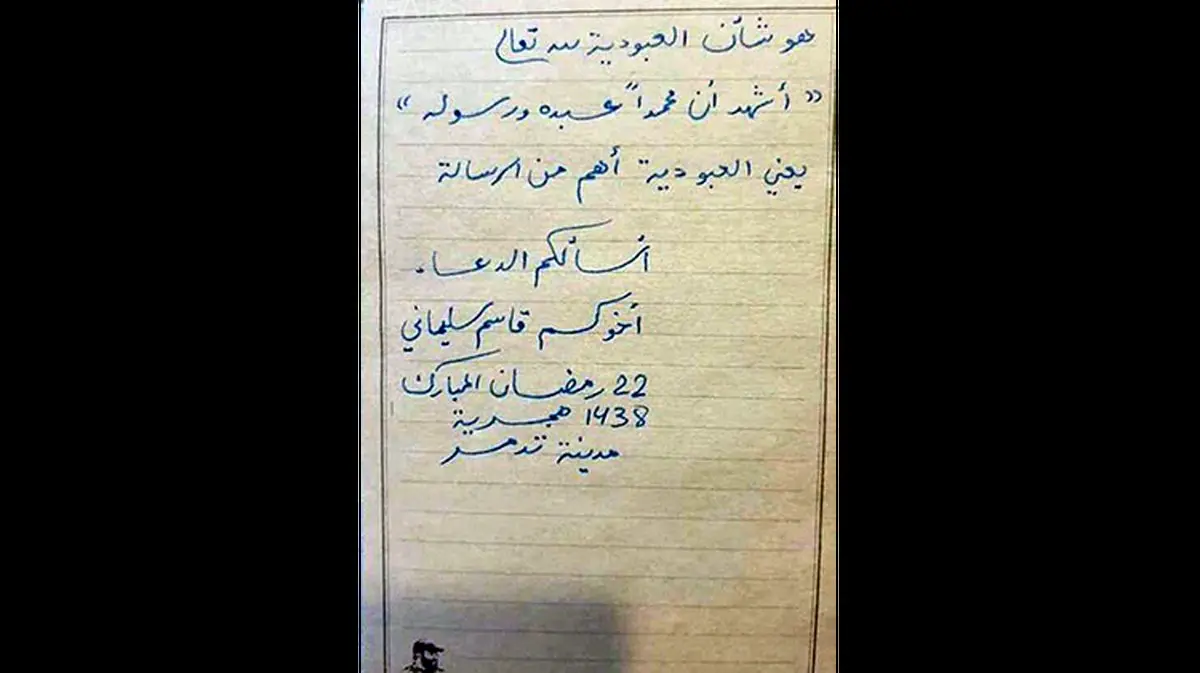 هو شأن العبودية لله تعالى
« أشهد أن محمداً عبده ورسوله »
يعني العبودية أهم من الرسالة
أسألكم الدعاء
أخوكم قاسم سليماني
22 رمضان المبارك
1438 هجرية
مدينة تدمر